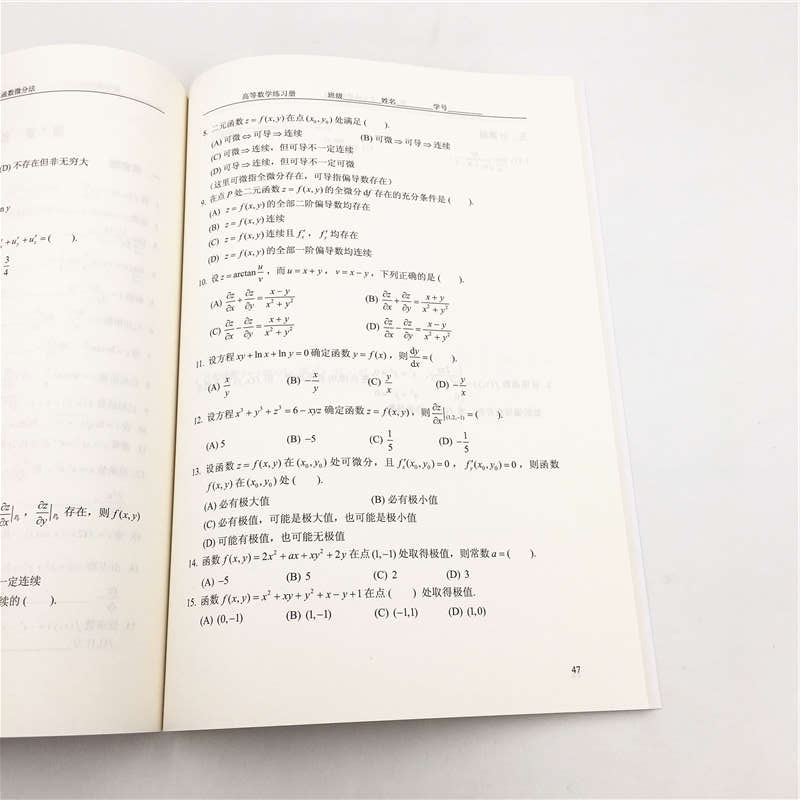 函数微分法
(D) 不存在但非无穷大
+ u″ + u″ = (　　).
3
4
∂z/∂x|P₀ ， ∂z/∂y|P₀ 存在，则 f(x,y)
一定连续
续的 (　　).
高等数学练习册　　班级______姓名______学号______
8. 二元函数 z = f(x, y) 在点 (x₀, y₀) 处满足 (　　).
(A) 可微 ⇔ 可导 ⇒ 连续　　(B) 可微 ⇒ 可导 ⇒ 连续
(C) 可微 ⇒ 连续，但可导不一定连续
(D) 可导 ⇒ 连续，但可导不一定可微
（这里可微指全微分存在，可导指偏导数存在）
9. 在点 P 处二元函数 z = f(x, y) 的全微分 df 存在的充分条件是 (　　).
(A) z = f(x, y) 的全部二阶偏导数均存在
(B) z = f(x, y) 连续
(C) z = f(x, y) 连续且 f′x ，f′y 均存在
(D) z = f(x, y) 的全部一阶偏导数均连续
10. 设 z = arctan u/v ，而 u = x + y ，v = x − y ，下列正确的是 (　　).
(A) ∂z/∂x + ∂z/∂y = (x − y)/(x² + y²)　　(B) ∂z/∂x + ∂z/∂y = (x + y)/(x² + y²)
(C) ∂z/∂x − ∂z/∂y = (x + y)/(x² + y²)　　(D) ∂z/∂x − ∂z/∂y = (x − y)/(x² + y²)
11. 设方程 xy + ln x + ln y = 0 确定函数 y = f(x) ，则 dy/dx = (　　).
(A) x/y　　(B) −x/y　　(C) y/x　　(D) −y/x
12. 设方程 x³ + y³ + z³ = 6 − xyz 确定函数 z = f(x, y) ，则 ∂z/∂x|(1,2,−1) = (　　).
(A) 5　　(B) −5　　(C) 1/5　　(D) −1/5
13. 设函数 z = f(x, y) 在 (x₀, y₀) 处可微分，且 f′x(x₀, y₀) = 0 ，f′y(x₀, y₀) = 0 ，则函数
f(x, y) 在 (x₀, y₀) 处 (　　).
(A) 必有极大值　　(B) 必有极小值
(C) 必有极值，可能是极大值，也可能是极小值
(D) 可能有极值，也可能无极值
14. 函数 f(x, y) = 2x² + ax + xy² + 2y 在点 (1, −1) 处取得极值，则常数 a = (　　).
(A) −5　　(B) 5　　(C) 2　　(D) 3
15. 函数 f(x, y) = x² + xy + y² + x − y + 1 在点 (　　) 处取得极值.
(A) (0, −1)　　(B) (1, −1)　　(C) (−1,1)　　(D) (1,0)
47